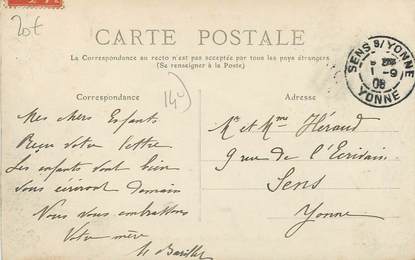 20t
CARTE POSTALE
La Correspondance au recto n'est pas acceptée par tous les pays étrangers
(Se renseigner à la Poste)
SENS S/YONNE
1 -9
08
YONNE
Correspondance
Adresse
Mes chers Enfants
Reçu votre lettre
Les enfants vont bien
vous écriront demain
Nous vous embrassons
Votre mère
Mr et Mme Héraud
9 rue de l'Ecrivain
Sens
Yonne